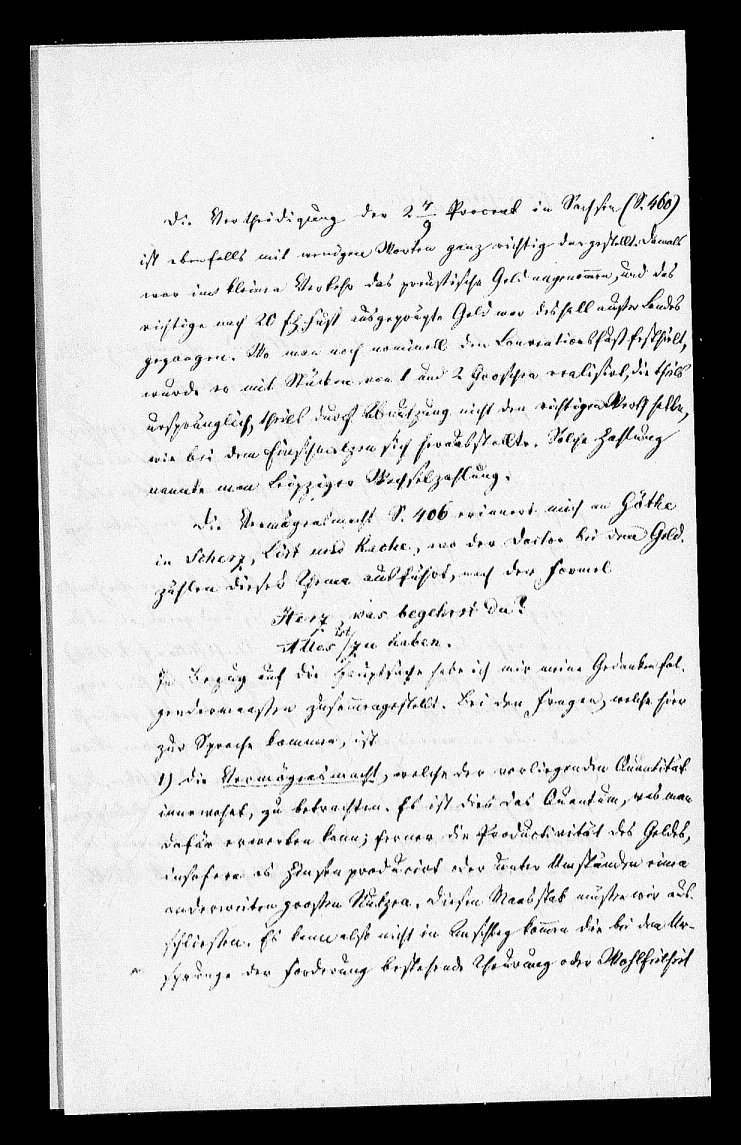 Die Vertheidigung der 2 4/9 Procent in Sachsen (S. 460)
ist ebenfalls mit wenigen Worten ganz richtig dargestellt. Damals
war im kleinen Verkehr das preußische Geld angenommen, und das
richtige nach 20 fl. Fuß ausgeprägte Geld war deshalb außer Landes
gegangen. Wo man noch nominell den Conventionsfuß festhielt,
wurde er mit Stücken von 1 und 2 Groschen realisirt, die theils
ursprünglich, theils durch Abnutzung nicht den richtigen Werth hatten,
wie bei dem Einschmelzen sich herausstellte. Solche Zahlung
nannte man Leipziger Wechselzahlung.
Die Vermögensmacht S. 406 erinnert mich an Göthe
in Scherz, List und Rache, wo der Doctor bei dem Geld
zählen dieses Thema ausführt, nach der Formel
Herz, was begehrst du?
Alles ist zu haben.
In Bezug auf die Hauptsache habe ich mir meine Gedanken fol-
gendermaaßen zusammengestellt. Bei den Fragen, welche hier
zur Sprache kommen, ist
1) die Vermögensmacht, welche der vorliegenden Quantität
innewohnt, zu betrachten. Es ist dies das Quantum, was man
dafür erwerben kann; ferner die Productivität des Geldes,
insofern es Zinsen producirt oder unter Umständen einen
anderweiten großen Nutzen. Diesen Maasstab müssen wir aus-
schließen. Es kann also nicht in Anschlag kommen die bei dem Ur-
sprunge der Forderung bestehende Theurung oder Wohlfeilheit